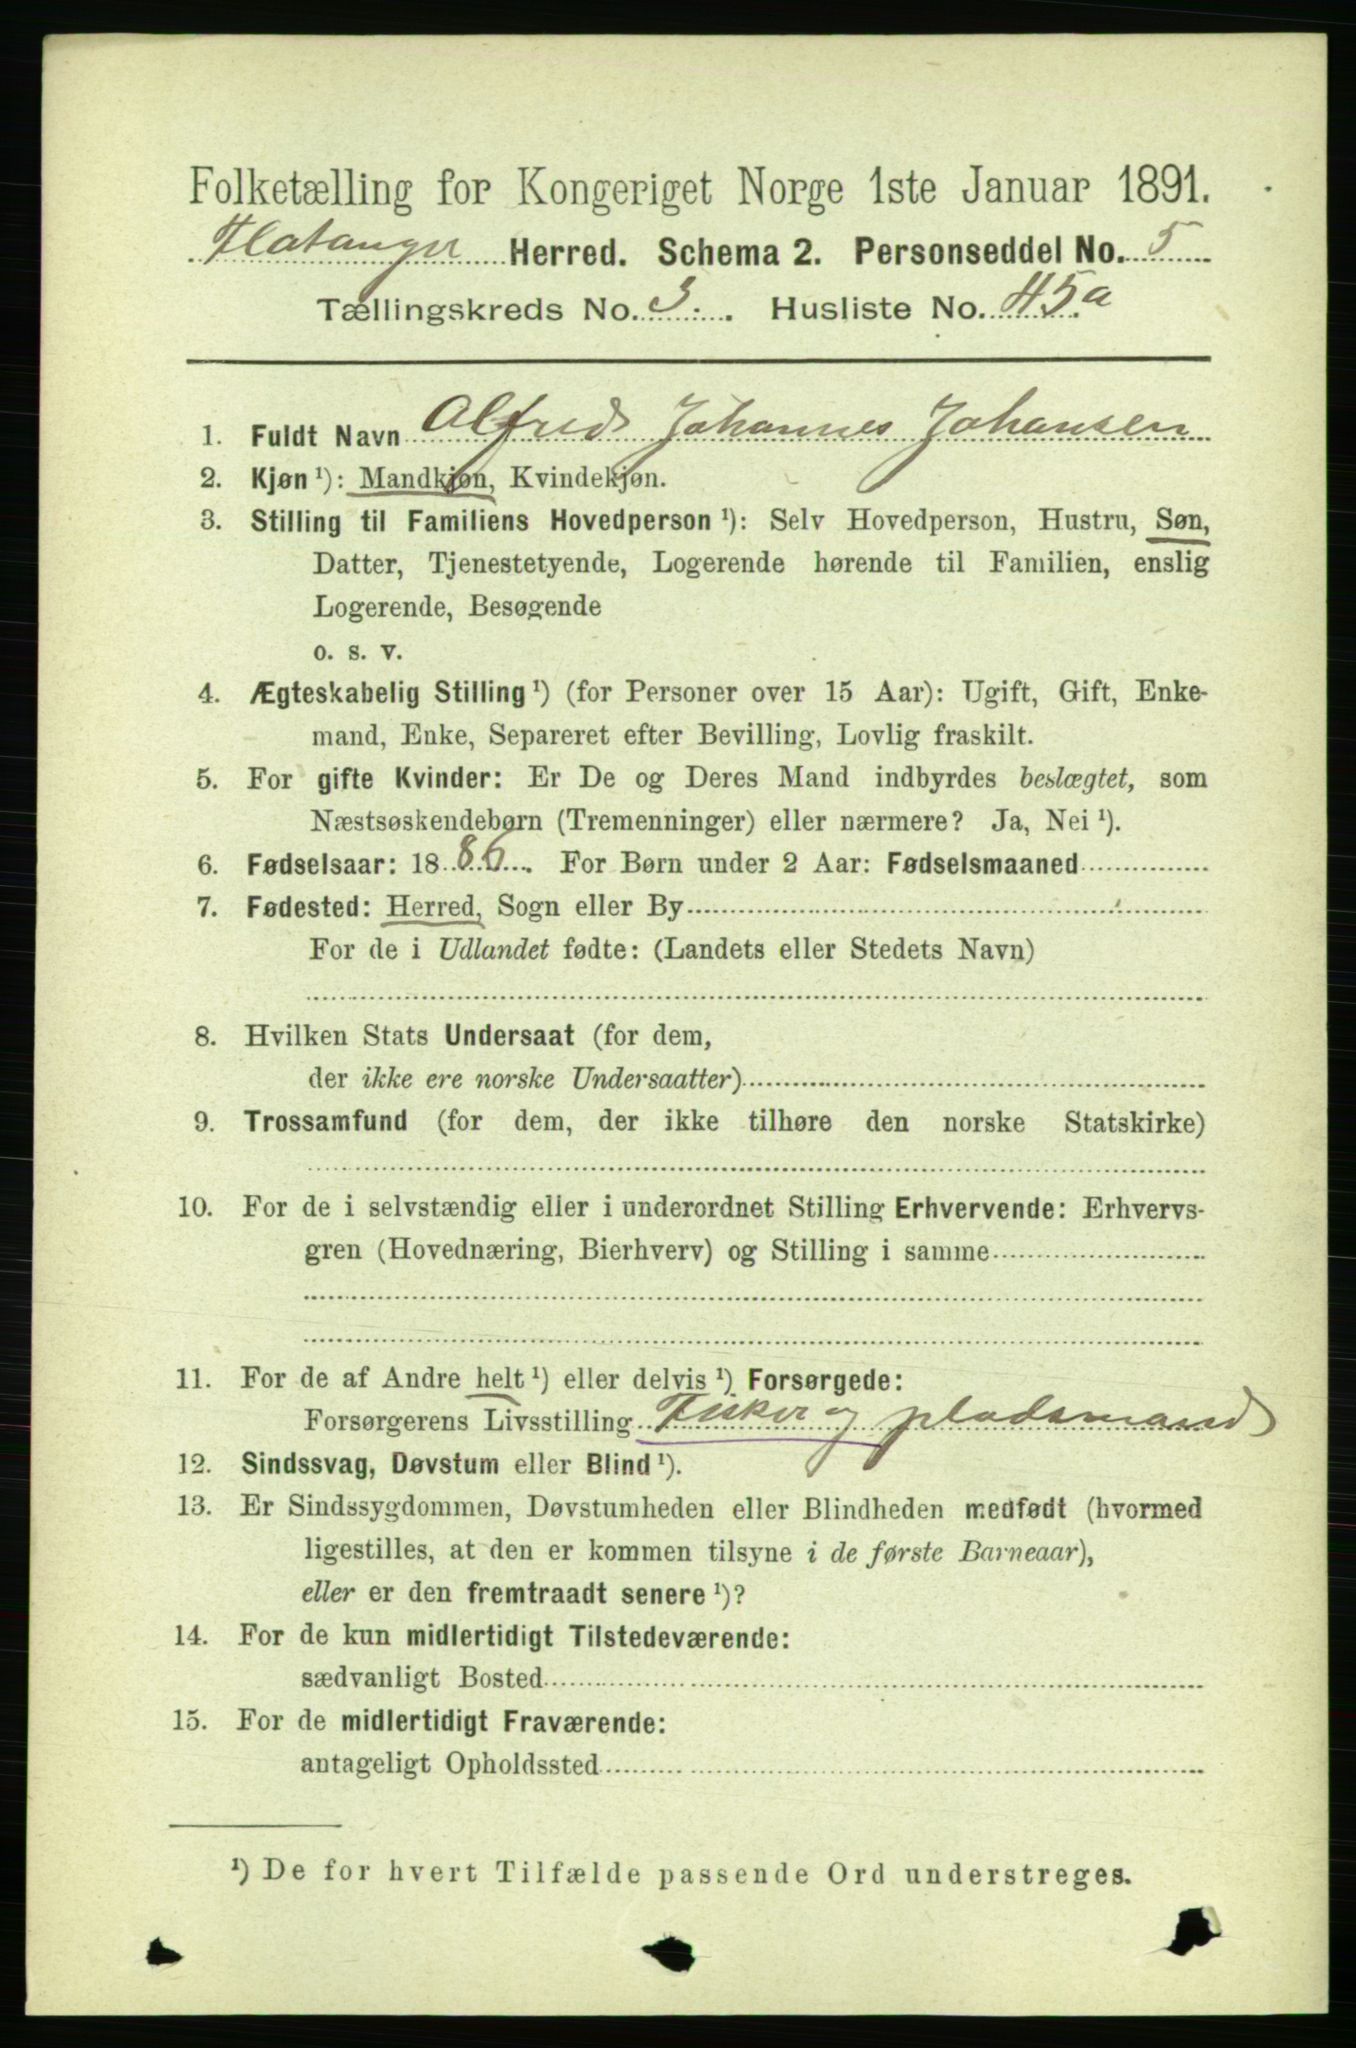 Folketælling for Kongeriget Norge 1ste Januar 1891.
Flatanger Herred. Schema 2. Personseddel No. 5
Tællingskreds No. 3. Husliste No. 45a
1. Fuldt Navn Alfred Johannes Johansen
2. Kjøn ¹): Mandkjøn, Kvindekjøn.
3. Stilling til Familiens Hovedperson ¹): Selv Hovedperson, Hustru, Søn,
Datter, Tjenestetyende, Logerende hørende til Familien, enslig
Logerende, Besøgende
o. s. v.
4. Ægteskabelig Stilling ¹) (for Personer over 15 Aar): Ugift, Gift, Enke-
mand, Enke, Separeret efter Bevilling, Lovlig fraskilt.
5. For gifte Kvinder: Er De og Deres Mand indbyrdes beslægtet, som
Næstsøskendebørn (Tremenninger) eller nærmere? Ja, Nei ¹).
6. Fødselsaar: 1886. For Børn under 2 Aar: Fødselsmaaned
7. Fødested: Herred, Sogn eller By
For de i Udlandet fødte: (Landets eller Stedets Navn)
8. Hvilken Stats Undersaat (for dem,
der ikke ere norske Undersaatter)
9. Trossamfund (for dem, der ikke tilhøre den norske Statskirke)
10. For de i selvstændig eller i underordnet Stilling Erhvervende: Erhvervs-
gren (Hovednæring, Bierhverv) og Stilling i samme
11. For de af Andre helt ¹) eller delvis ¹) Forsørgede:
Forsørgerens Livsstilling Fisker og pladsmand
12. Sindssvag, Døvstum eller Blind ¹).
13. Er Sindssygdommen, Døvstumheden eller Blindheden medfødt (hvormed
ligestilles, at den er kommen tilsyne i de første Barneaar),
eller er den fremtraadt senere ¹)?
14. For de kun midlertidigt Tilstedeværende:
sædvanligt Bosted
15. For de midlertidigt Fraværende:
antageligt Opholdssted
¹) De for hvert Tilfælde passende Ord understreges.